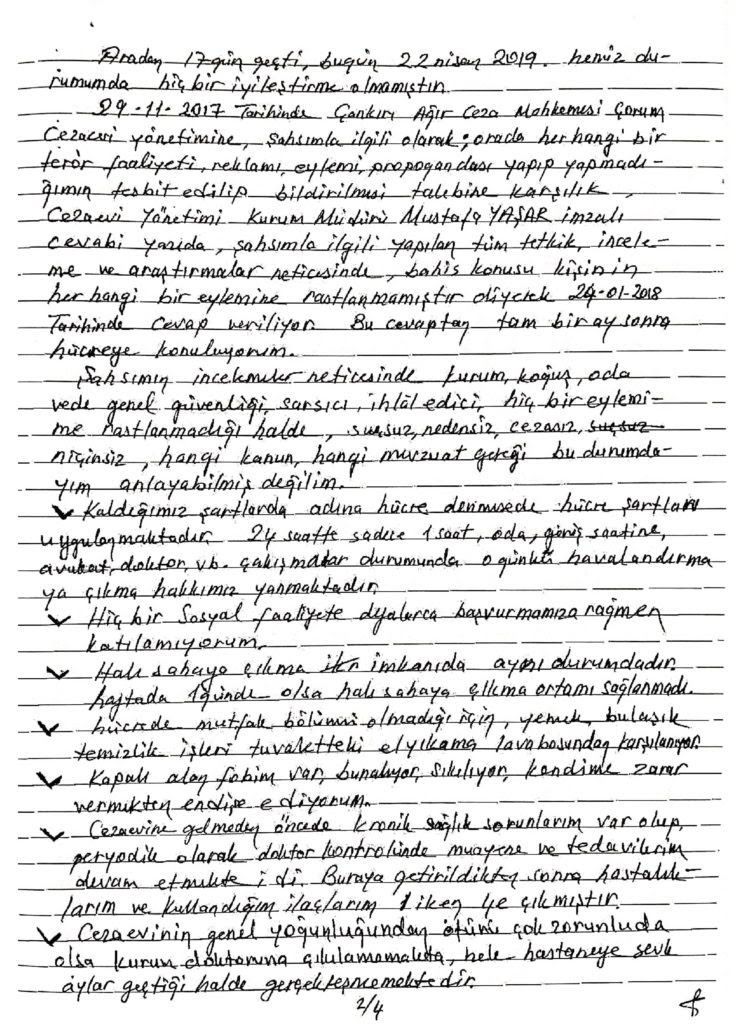 Aradan 17 gün geçti, bugün 22 nisan 2019. henüz du-
rumumda hiç bir iyileştirme olmamıştır.
29-11-2017 Tarihinde Çankırı Ağır Ceza Mahkemesi Çorum
Cezaevi yönetimine, şahsımla ilgili olarak; orada her hangi bir
terör faaliyeti, reklamı, eylemi, propogandası yapıp yapmadı-
ğımın tesbit edilip bildirilmesi talebine karşılık,
Cezaevi Yönetimi Kurum Müdürü Mustafa YAŞAR imzalı
cevabi yazıda, şahsımla ilgili yapılan tüm tetkik, incele-
me ve araştırmalar neticesinde, bahis konusu kişinin
her hangi bir eylemine rastlanmamıştır diyerek 24-01-2018
Tarihinde cevap veriliyor. Bu cevaptan tam bir ay sonra
hücreye konuluyorum.
Şahsımın incelemeler neticesinde kurum, koğuş, oda
vede genel güvenliği, sarsıcı, ihlâl edici, hiç bir eylemi-
me rastlanmadığı halde, suçsuz, nedensiz, cezasız, suçsuz
niçinsiz, hangi kanun, hangi mevzuat gereği bu durumda-
yım anlayabilmiş değilim.
✓ Kaldığımız şartlarda adına hücre denmesede hücre şartları
uygulanmaktadır. 24 saatte sadece 1 saat, oda, görüş saatine,
avukat, doktor, vb. çakışmalar durumunda o günkü havalandırma
ya çıkma hakkımız yanmaktadır.
✓ Hiç bir Sosyal faaliyete defalarca başvurmamıza rağmen
katılamıyorum.
✓ Halı sahaya çıkma imkanıda aynı durumdadır.
haftada 1 günde olsa halı sahaya çıkma ortamı sağlanmadı.
✓ hücrede mutfak bölümü olmadığı için, yemek, bulaşık
temizlik işleri tuvaletteki el yıkama lavabosundan karşılanıyor.
✓ Kapalı alan fobim var, bunalıyor, sıkılıyor, kendime zarar
vermekten endişe ediyorum.
✓ Cezaevine gelmeden öncede kronik sağlık sorunlarım var olup,
peryodik olarak doktor kontrolünde muayene ve tedavilerim
devam etmekte idi. Buraya getirildikten sonra hastalık-
larım ve kullandığım ilaçlarım 1 iken 4e çıkmıştır.
✓ Cezaevinin genel yoğunluğundan ötürü çok zorunluda
olsa kurum doktoruna çıkılamamakta, hele hastaneye sevk
aylar geçtiği halde gerçekleşmemektedir.
2/4